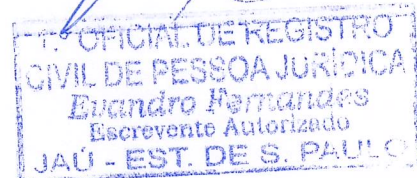 1.º OFICIAL DE REGISTRO
CIVIL DE PESSOA JURÍDICA
Evandro Fernandes
Escrevente Autorizado
JAÚ - EST. DE S. PAULO